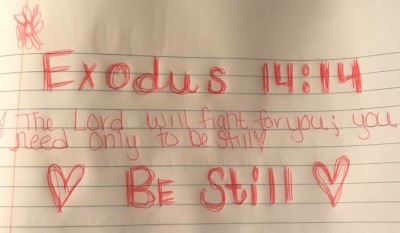 Exodus 14:14
The Lord will fight for you; you
need only to be still
BE Still